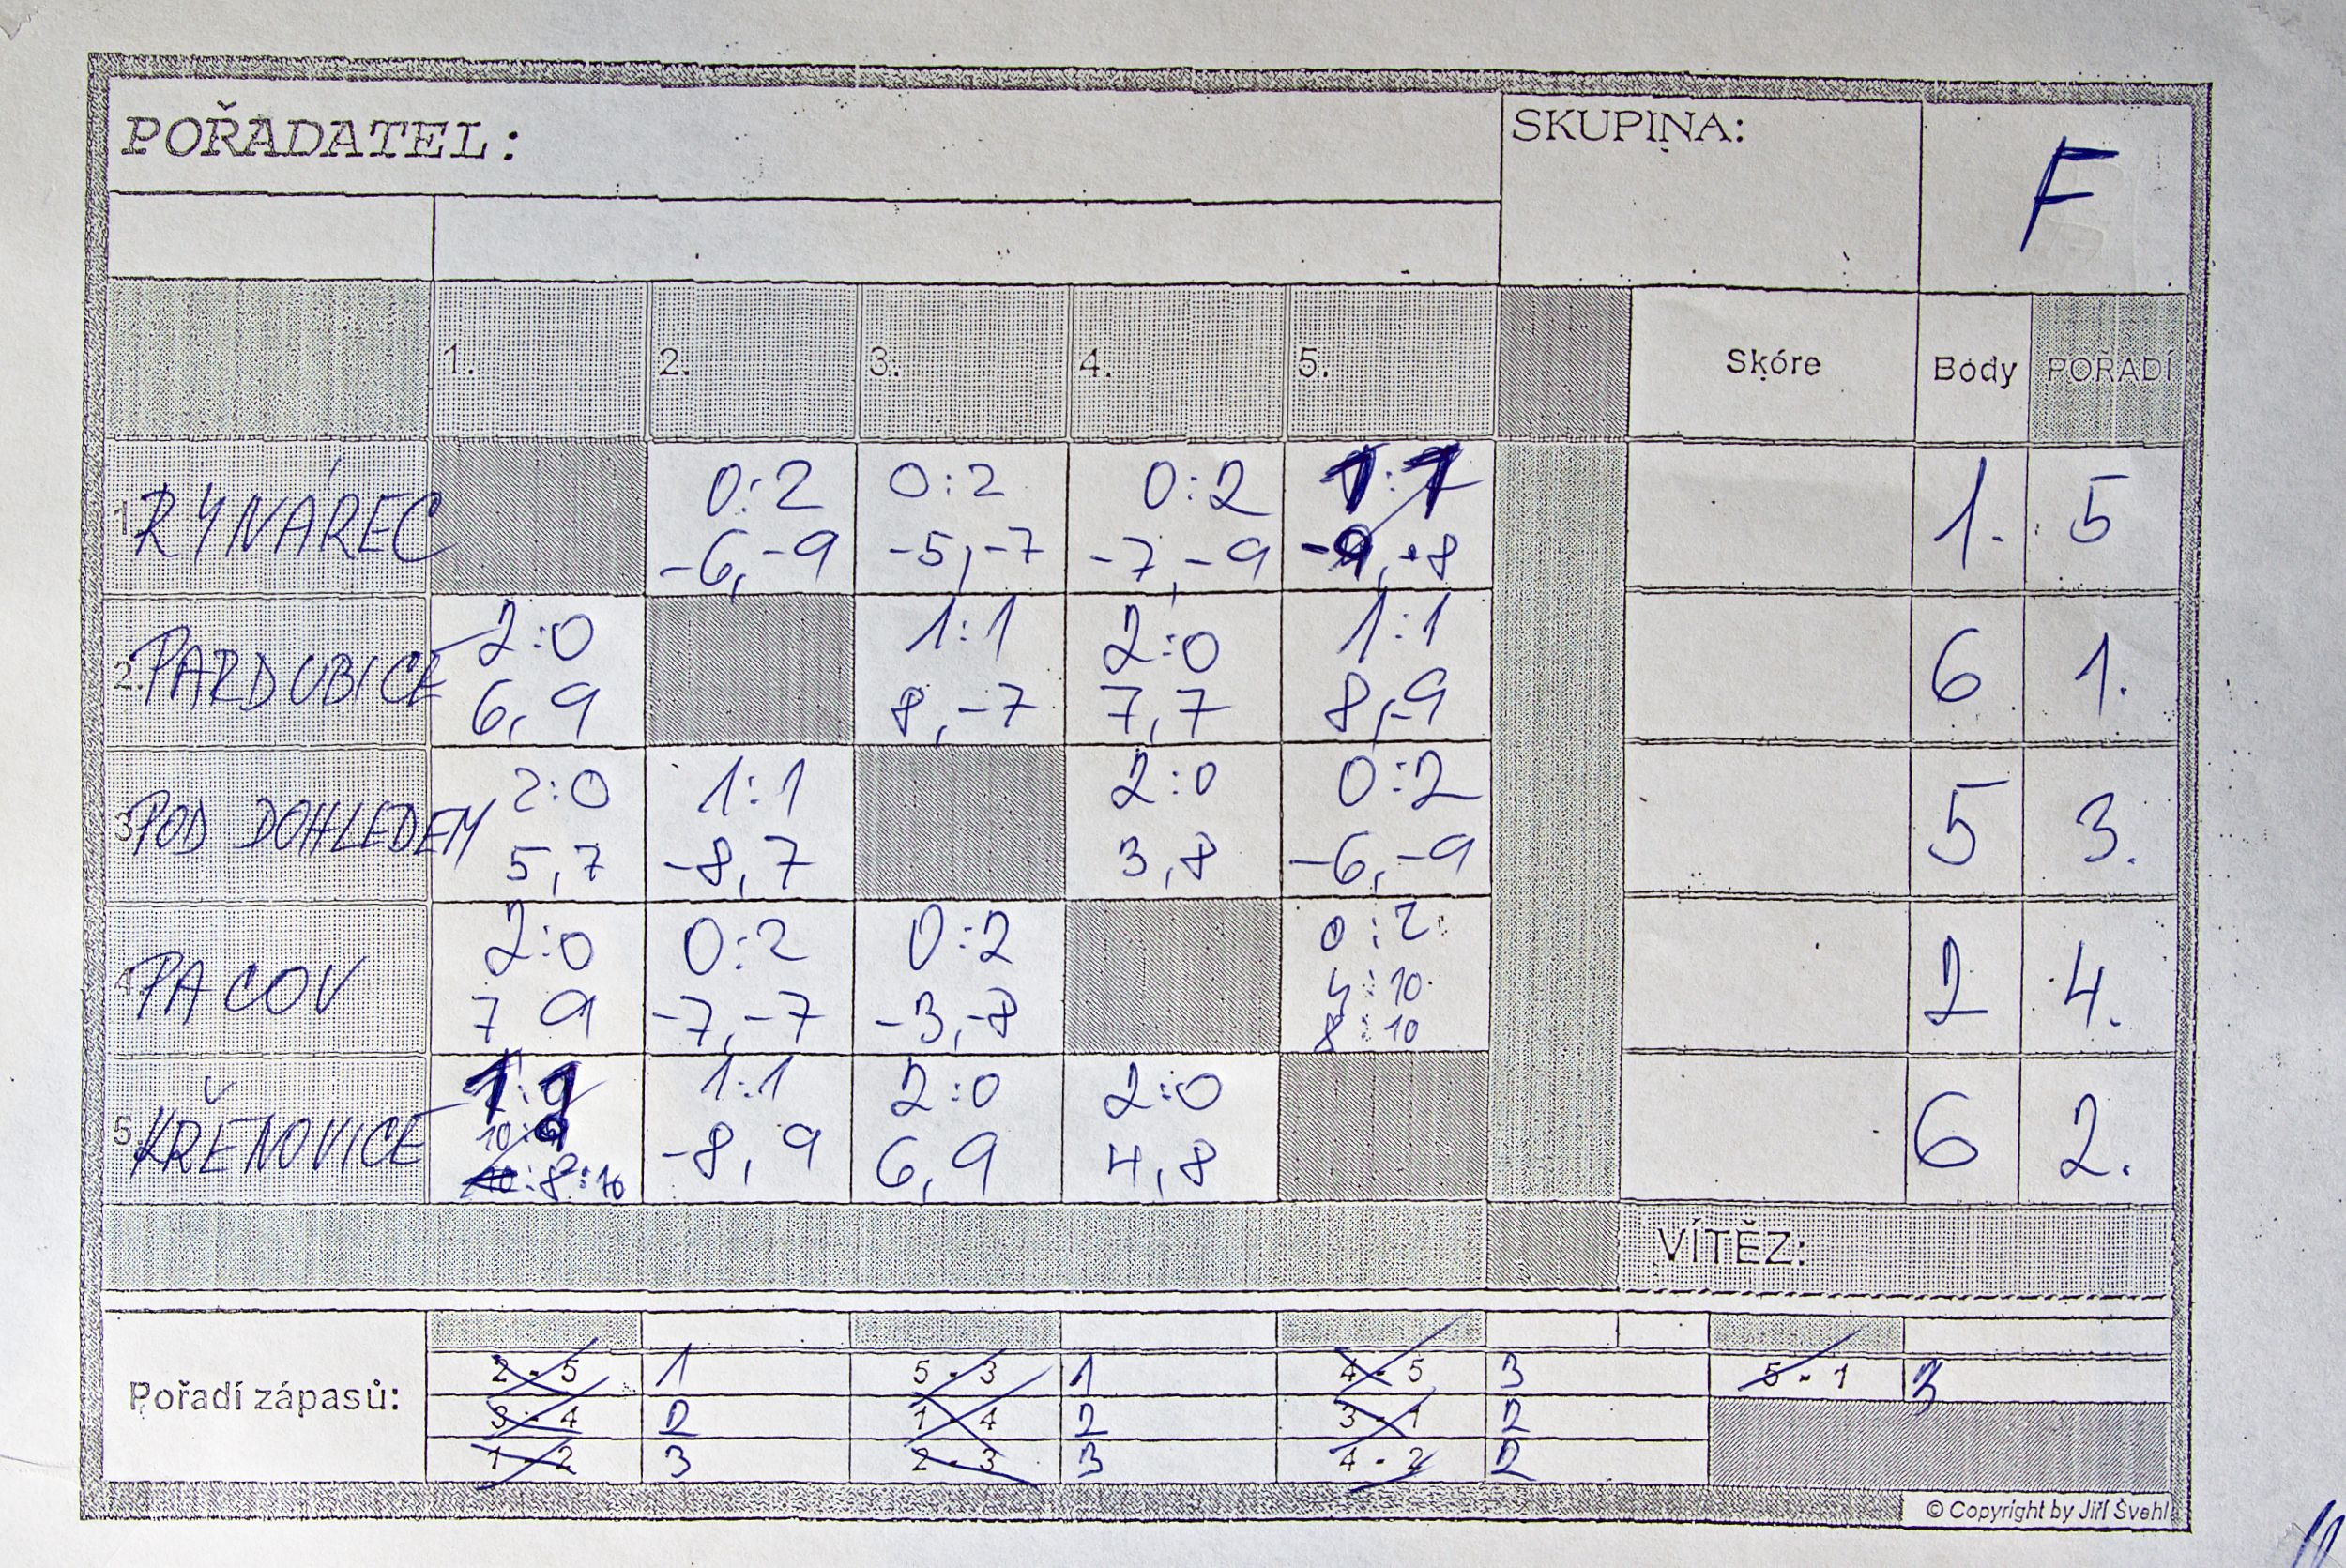 POŘADATEL:
SKUPINA:
F
1. 2. 3. 4. 5. Skóre Body POŘADÍ
1. RYNÁREC 0:2 0:2 0:2 1:1 1. 5
-6,-9 -5,-7 -7,-9 -9,+8
2. PARDUBICE 2:0 1:1 2:0 1:1 6 1.
6,9 8,-7 7,7 8,-9
3. POD DOHLEDEM 2:0 1:1 2:0 0:2 5 3.
5,7 -8,7 3,8 -6,-9
4. PACOV 2:0 0:2 0:2 0:2 2 4.
7 9 -7,-7 -3,-8 4:10
8:10
5. KŘENOVICE 1:1 1:1 2:0 2:0 6 2.
10:9 -8,9 6,9 4,8
8:10
VÍTĚZ:
Pořadí zápasů:
2 - 5 1 5 - 3 1 4 - 5 3 5 - 1 3
3 - 4 2 1 - 4 2 3 - 1 2
1 - 2 3 2 - 3 3 4 - 2 2
© Copyright by Jiří Švehl